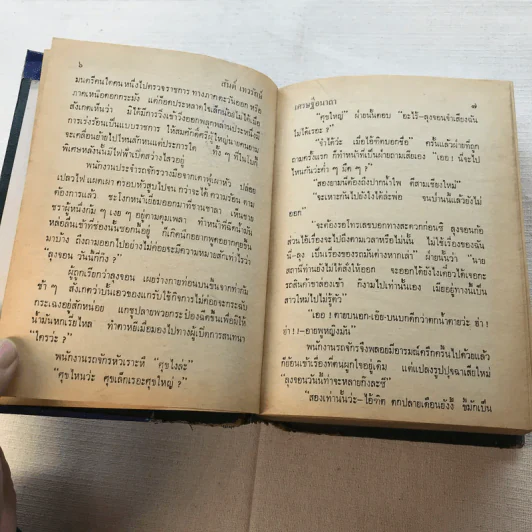 ๖
สันต์ เทวรักษ์
มนตรีคนใดคนหนึ่งไปตรวจราชการ ทางภาคตะวันออก หรือ
ภาคเหนือดอกกระมัง แต่ก็ออกประหลาดใจเล็กน้อยไม่ได้เมื่อ
สังเกตเห็นว่า มิได้มีการวิ่งเข้าวิ่งออกพลุกพล่านประหนึ่ง
การเร่งร้อนเป็นแบบราชการ ให้สมศักดิ์ศรีผู้ใหญ่นายคนตาม
จะเคลื่อนย้ายไปไหนสักแห่งแต่ประการใด ทั้ง ๆ ที่ในโบกี้
พิเศษหลังนั้นมีไฟฟ้าเปิดสว่างไสวอยู่
พนักงานประจำรถจักรวางมือจากเตาคู่เผาหัว ปล่อย
เปลวไฟ แผดเผา ครอบหัวสูบไปจน กว่าจะได้ ความร้อน ตาม
ต้องการแล้ว ชะโงกหน้าเยี่ยมออกมาที่ชานชาลา เห็นชาย
ชราผู้หนึ่งก้ม ๆ เงย ๆ อยู่ตามคุมเพลา ทำหน้าที่ฉีดน้ำมัน
หล่อลื่นเข้าที่ช่องนั้นซอกนี้อยู่ ก็เกิดนึกอยากพูดอยากคุยขึ้น
มาบ้าง ถึงถามออกไปอย่างไม่ค่อยจะมีความหมายสักเท่าไรว่า
"ลุงจอน วันนี้กี่งู ?
ผู้ถูกเรียกว่าลุงจอน เผยร่างกายท่อนบนขึ้นจากก้ม
ช้า ๆ สังเกตว่าบั้นเอวของแกรับใช้กิจการไม่ค่อยจะกระฉับ
กระเฉงอยู่สักหน่อย แกชูปลายพวยกระป๋องฉีดขึ้นเพื่อมิให้
น้ำมันหกเรี่ยไหล ทำตาหยีเมื่อมองไปทางผู้เปิดการสนทนา
"ใครวะ ?
พนักงานรถจักรหัวเราะหึ "ศุขไงล่ะ"
"ศุขไหนวะ ศุขเล็กเรอะศุขใหญ่ ?
เศรษฐีอนาถา
๗
"ศุขใหญ่" ฝ่ายนั้นตอบ "อะไร–ลุงจอนจำเสียงฉัน
ไม่ได้เรอะ ?"
"จำได้วะ เมื่อไอ้ศุขบอกชื่อ" ครั้นแล้วฝ่ายที่ถูก
ถามครั้งแรก ก็ทำหน้าที่เป็นฝ่ายถามเสียเอง "เออ ! นี่จะไป
ไหนกันวะค่ำ ๆ มืด ๆ ?"
"สองยามนี่ต้องถึงปากน้ำโพ ตีสามเชียงใหม่"
"จะเหาะกันไปยังไงได้ล่ะพ่อ จนป่านนี้แล้วยังไม่
ออก"
"จะต้องรอโทรเลขบอกทางสะดวกก่อนซิ ลุงจอนก้อ
ส่วนไอ้เรื่องจะไปถึงตามเวลาหรือไม่นั้น ไม่ใช่เรื่องของฉัน
นี่–ลุง เป็นเรื่องของรถมันต่างหากเล่า" ฝ่ายนั้นว่า "นาย
สถานีท่านยังไม่ได้สั่งให้ออก จะออกได้ยังไงเดี๋ยวได้เจอกะ
รถสินค้าขาล่องเข้า ก็งามไปเท่านั้นเอง เมียอยู่ทางนี้เป็น
สาวใหม่ไปไม่รู้ตัว"
"เออ ! ตายบนอก–เอ๊ย–บนบกดีกว่าตกน้ำตายวะ ฮ่า !
ฮ่า !–อายพูหญิงมัน"
พนักงานรถจักรจึงพลอยมีอารมณ์ครึกครื้นไปด้วยแล้ว
ก็ย้อนเข้าเรื่องที่ตนผูกใจอยู่เดิม แต่แปลงรูปปุจฉาเสียใหม่
"ลุงจอนวันนี้ท่าจะหลายกึงละซี"
"สองเท่านั้นว่ะ–ไอ้ฑิต ตกปลายเดือนยังงี้ ขี้มักเป็น